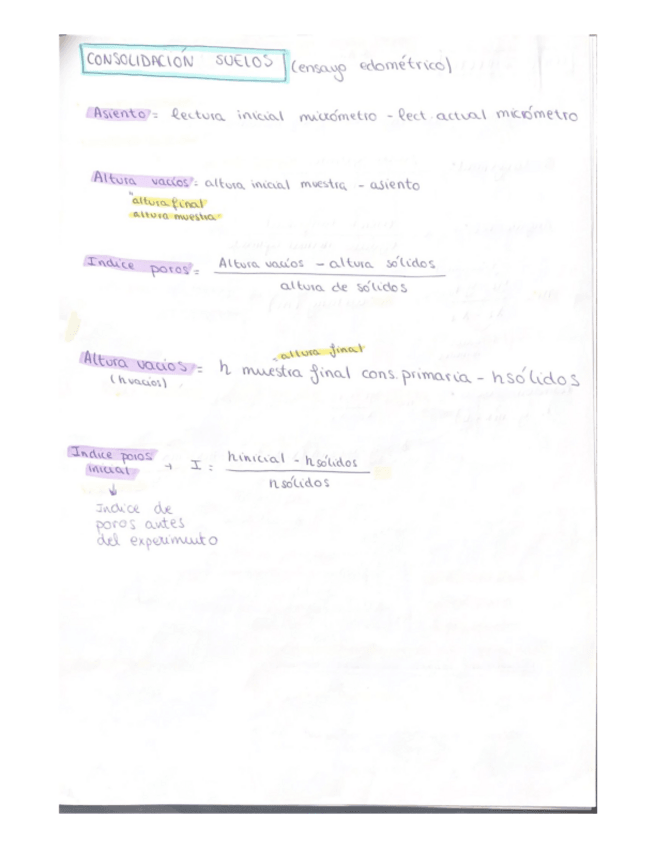 CONSOLIDACIÓN SUELOS (ensayo edométrico)
Asiento = lectura inicial micrómetro - lect. actual micrómetro
Altura vacíos = altura inicial muestra - asiento
"altura final
altura muestra
Indice poros = Altura vacíos - altura sólidos
altura de sólidos
altura final
Altura vacios = h muestra final cons. primaria - h sólidos
(h vacios)
Indice poros
inicial → I = h inicial - h sólidos
h sólidos
Indice de
poros antes
del experimento